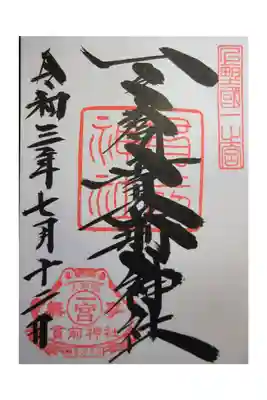 上野國一之宮
一之宮貫前神社
令和三年七月十二日
一宮
貫前神社